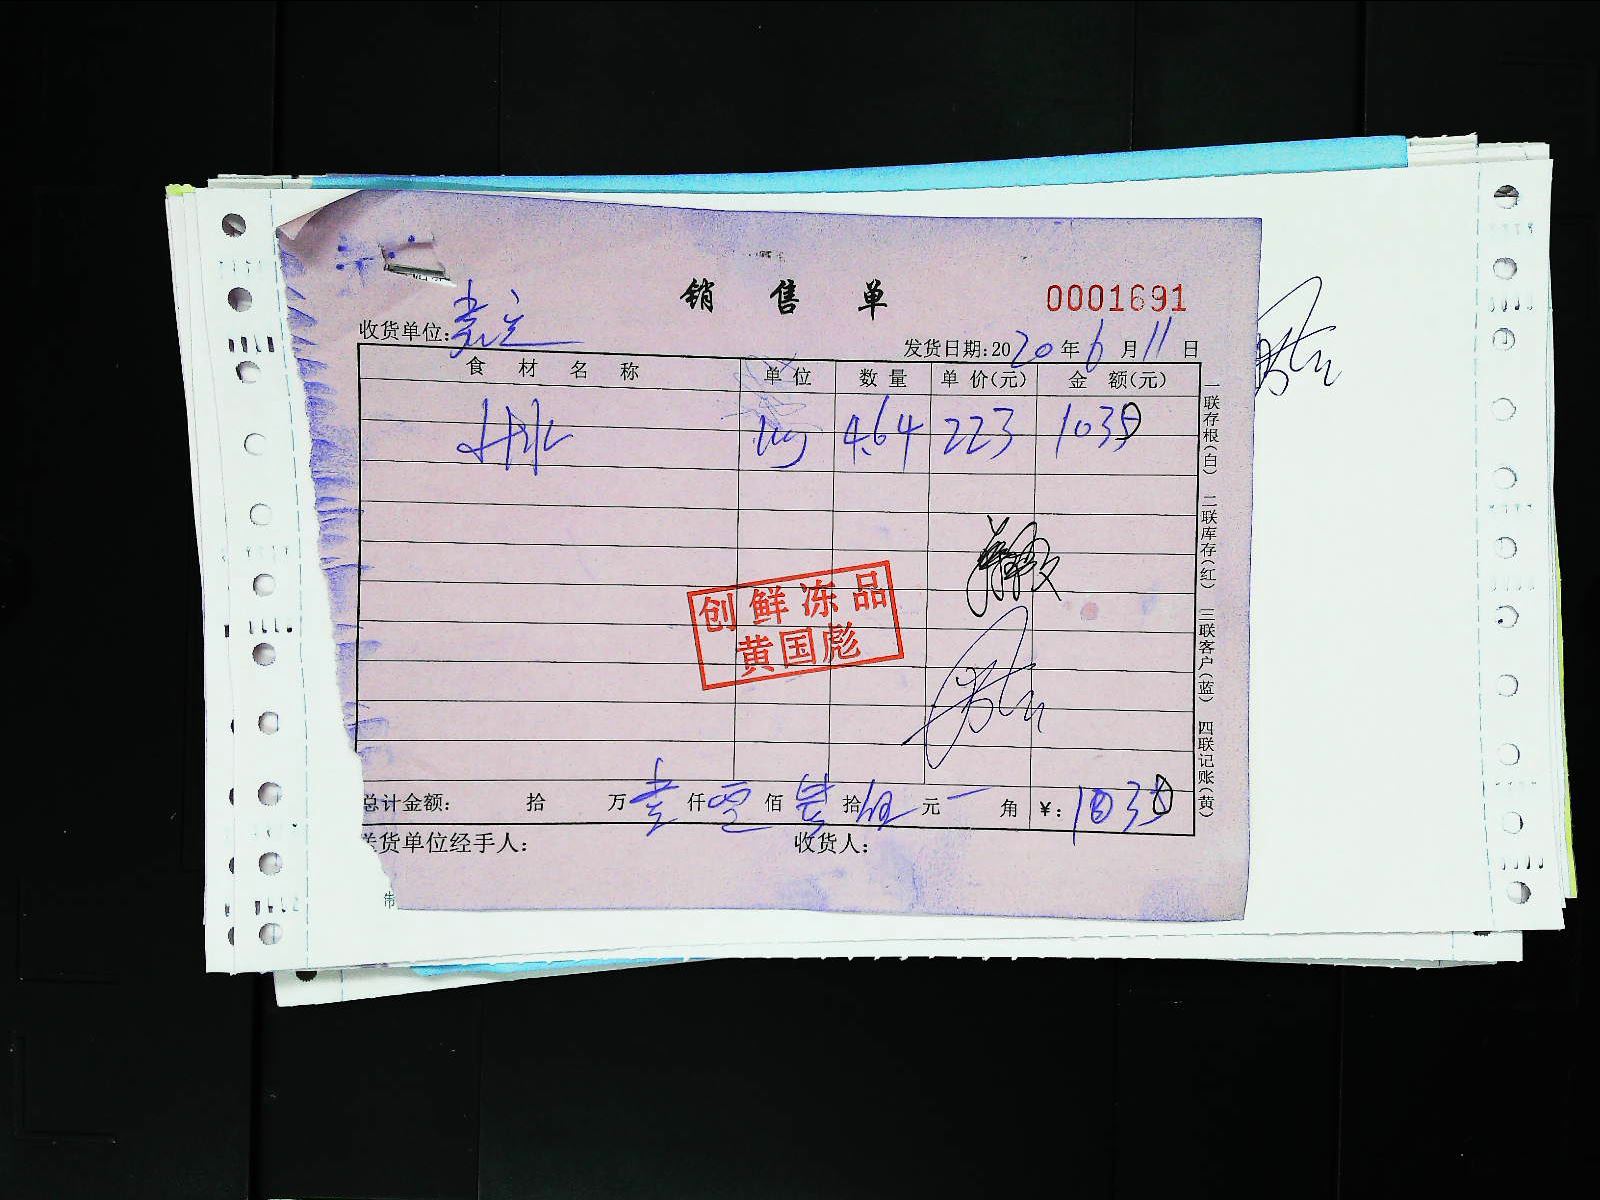 销 售 单
0001691
收货单位:
发货日期:2020年6月11日
食 材 名 称 单 位 数 量 单 价(元) 金 额(元)
kg 4.64 223 103
创鲜冻品
黄国彪
总计金额: 拾 万壹仟零佰叁拾伍元一角 ¥: 103
送货单位经手人: 收货人:
一联存根(白) 二联库存(红) 三联客户(蓝) 四联记账(黄)
制